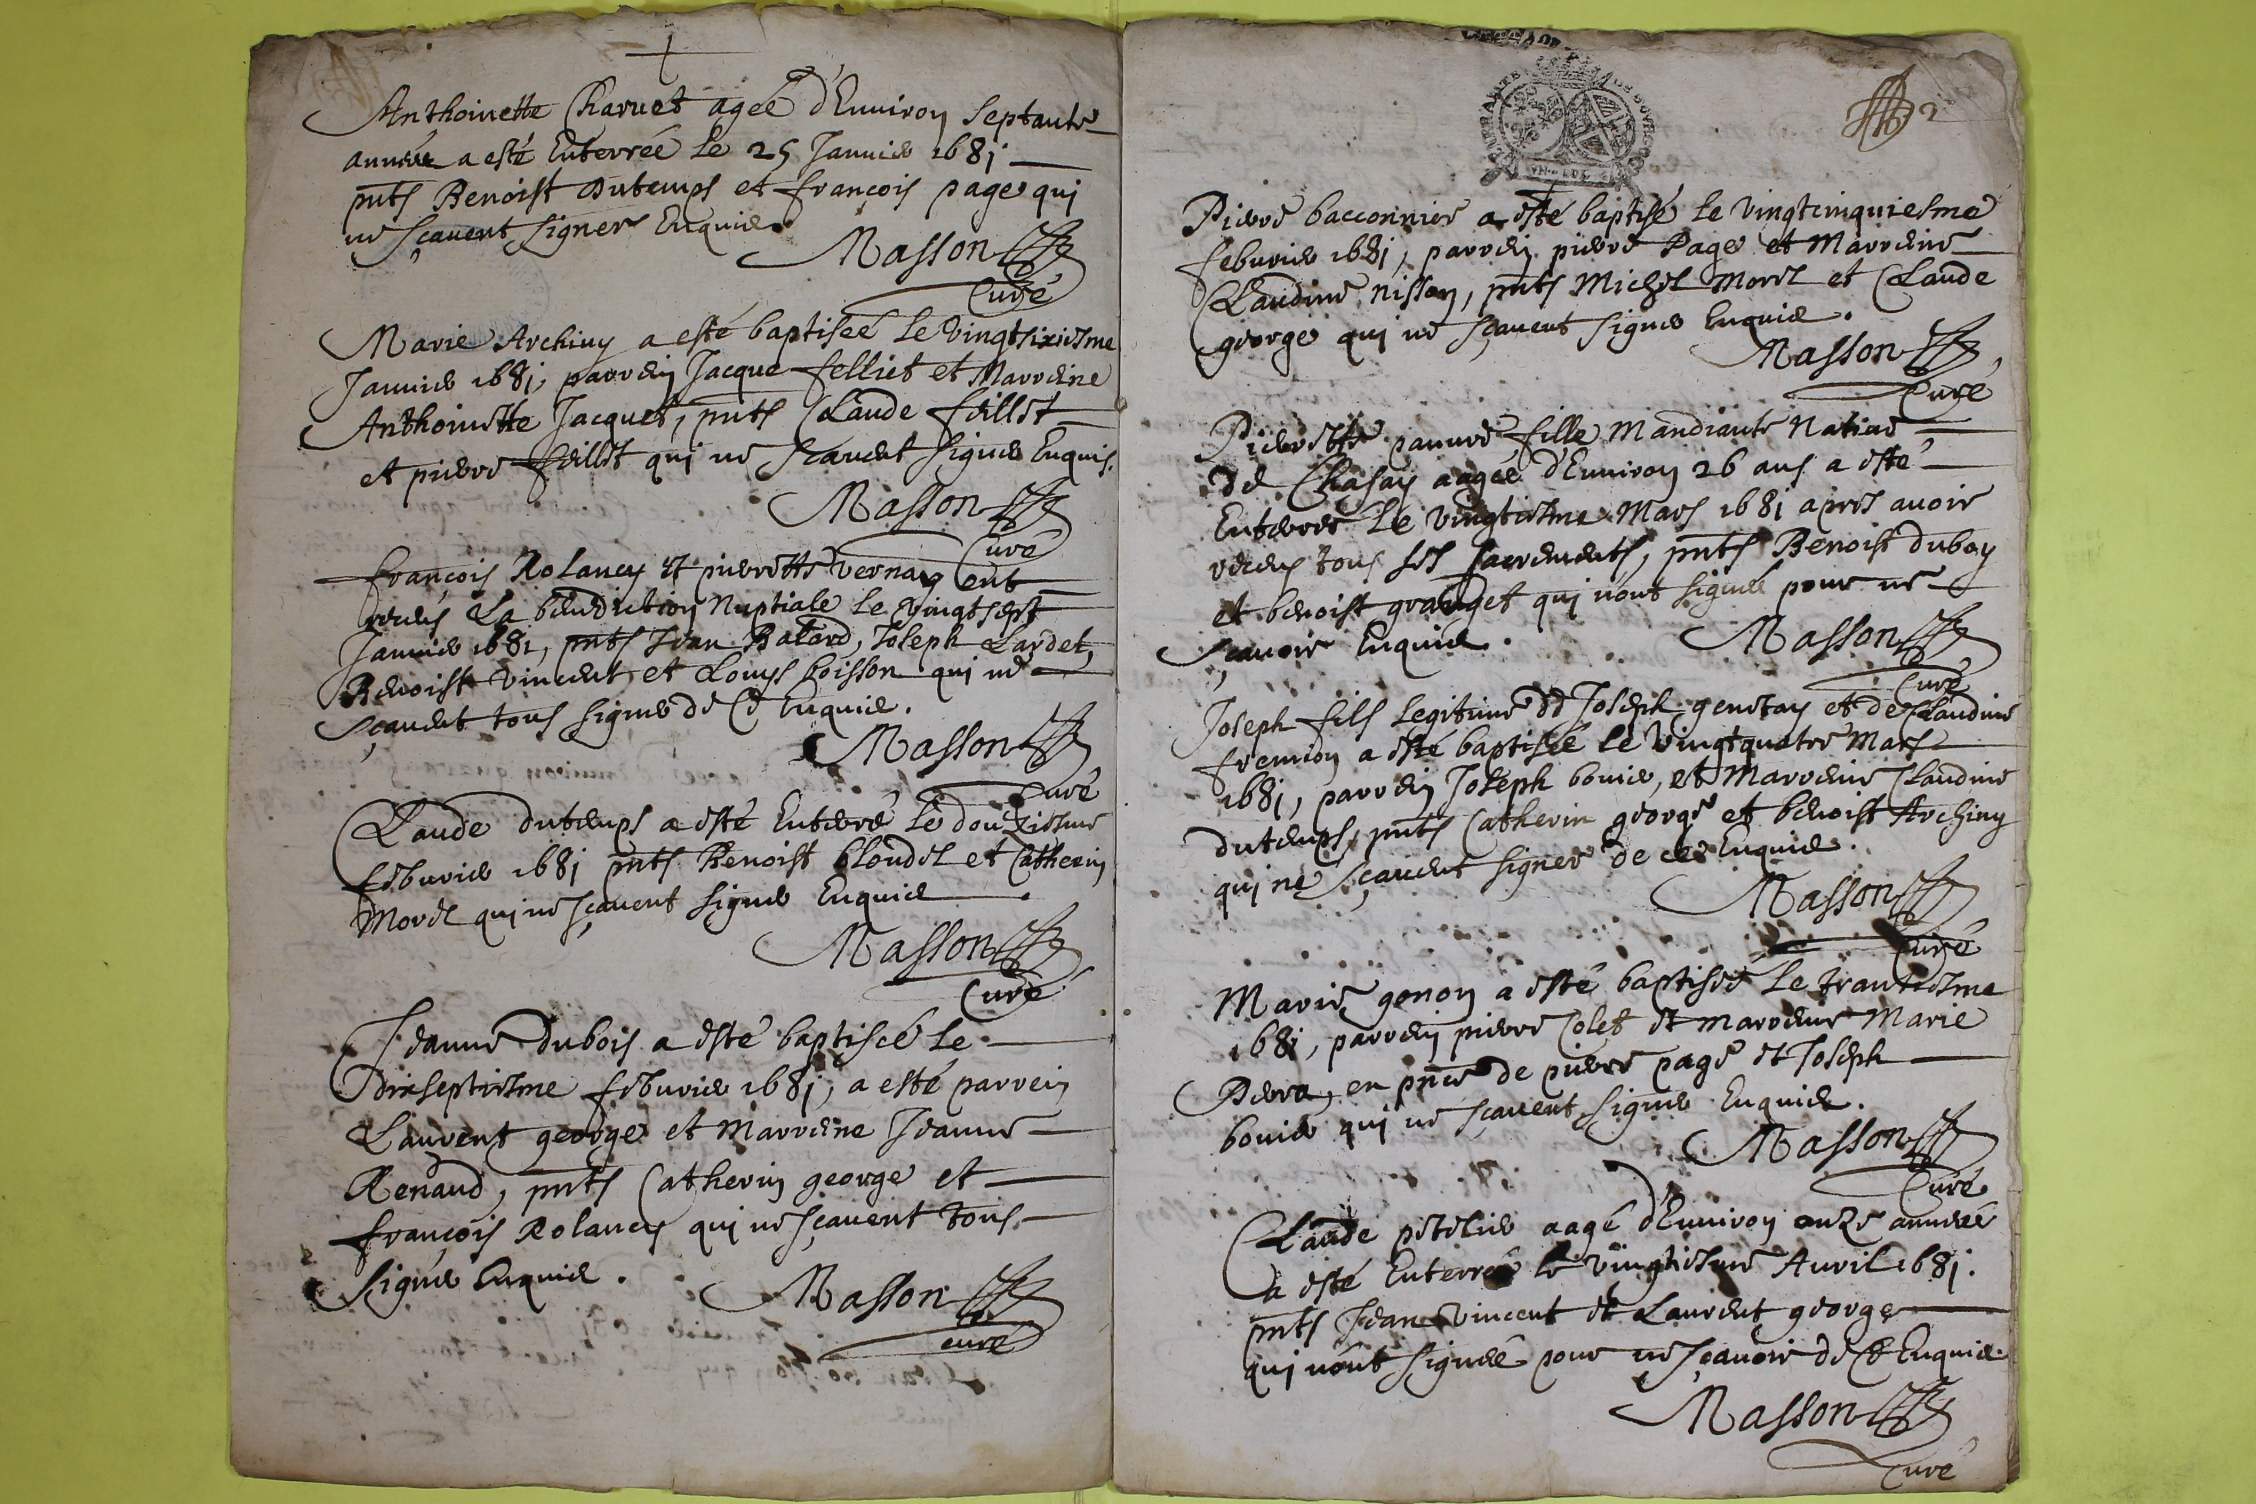 Anthoinette Charuet agée d'Enuiron septante
année a esté Enterrée le 25 Januier 1681
pnts Benoist Dutemps et françois page qui
ne sçauent signer Enquis
Masson
Curé
Marie Archiny a esté baptiseé le vingtsixiesme
Januier 1681, parrein Jacque felliet et Marreine
Anthoinette Jacquet, pnts Claude feillet
et pierre feillet qui ne scauent signer Enquis.
Masson
Curé
françois Rolancy et pierrette vernay ont
receus La benediction Nuptiale le vingtsept
Januier 1681, pnts Jean Batard, Joseph Lardet,
Benoist vincent et Louys boisson qui ne
sçauent tous signer de Ce Enquis.
Masson
Curé
Claude dutemps a esté Enterré le douziesme
feburier 1681 pnts Benoist blondel et Catherin
Morel qui ne sçauent signer Enquis
Masson
Curé
Jeanne dubois a esté baptiseé le
dixseptiesme feburier 1681, a esté parrein
Laurent george et Marreine Jeanne
Renaud, pnts Catherin george et
françois Rolancy qui ne sçauent tous
signer Enquis.
Masson
curé
2
Pierre bacconnier a esté baptisé le vingtcinquiesme
feburier 1681, parrein pierre Page et Marreine
Claudine nisson, pnts Michel morel et Claude
george qui ne sçauent signer Enquis.
Masson
Curé
Pierrette pauure fille Mandiante Natiue
de Chasay aageé d'Enuiron 26 ans a esté
Enterreé le vingtiesme Mars 1681 apres auoir
receus tous les sacrements, pnts Benoist duboy
et benoist grandget qui n'ont signé pour ne
sçauoir Enquis.
Masson
Curé
Joseph fils legitime de Joseph genetay et de Claudine
fremion a esté baptisé le vingtquatre Mars
1681, parrein Joseph bouier, et Marreine Claudine
dutemps, pnts Catherin george et benoist Archiny
qui ne sçauent signer de ce Enquis.
Masson
Curé
Marie genon a esté baptiseé le trantiesme
1681, parrein pierre Colet et marreine Marie
Perra, en pnce de pierre page et Joseph
bouier qui ne sçauent signer Enquis.
Masson
Curé
Claude petelier aagé d'Enuiron onze anneé
a esté Enterré le vingtiesme Auril 1681.
pnts Jean vincent et Laurent george
qui n'ont signeé pour ne sçauoir de Ce Enquis.
Masson
Curé